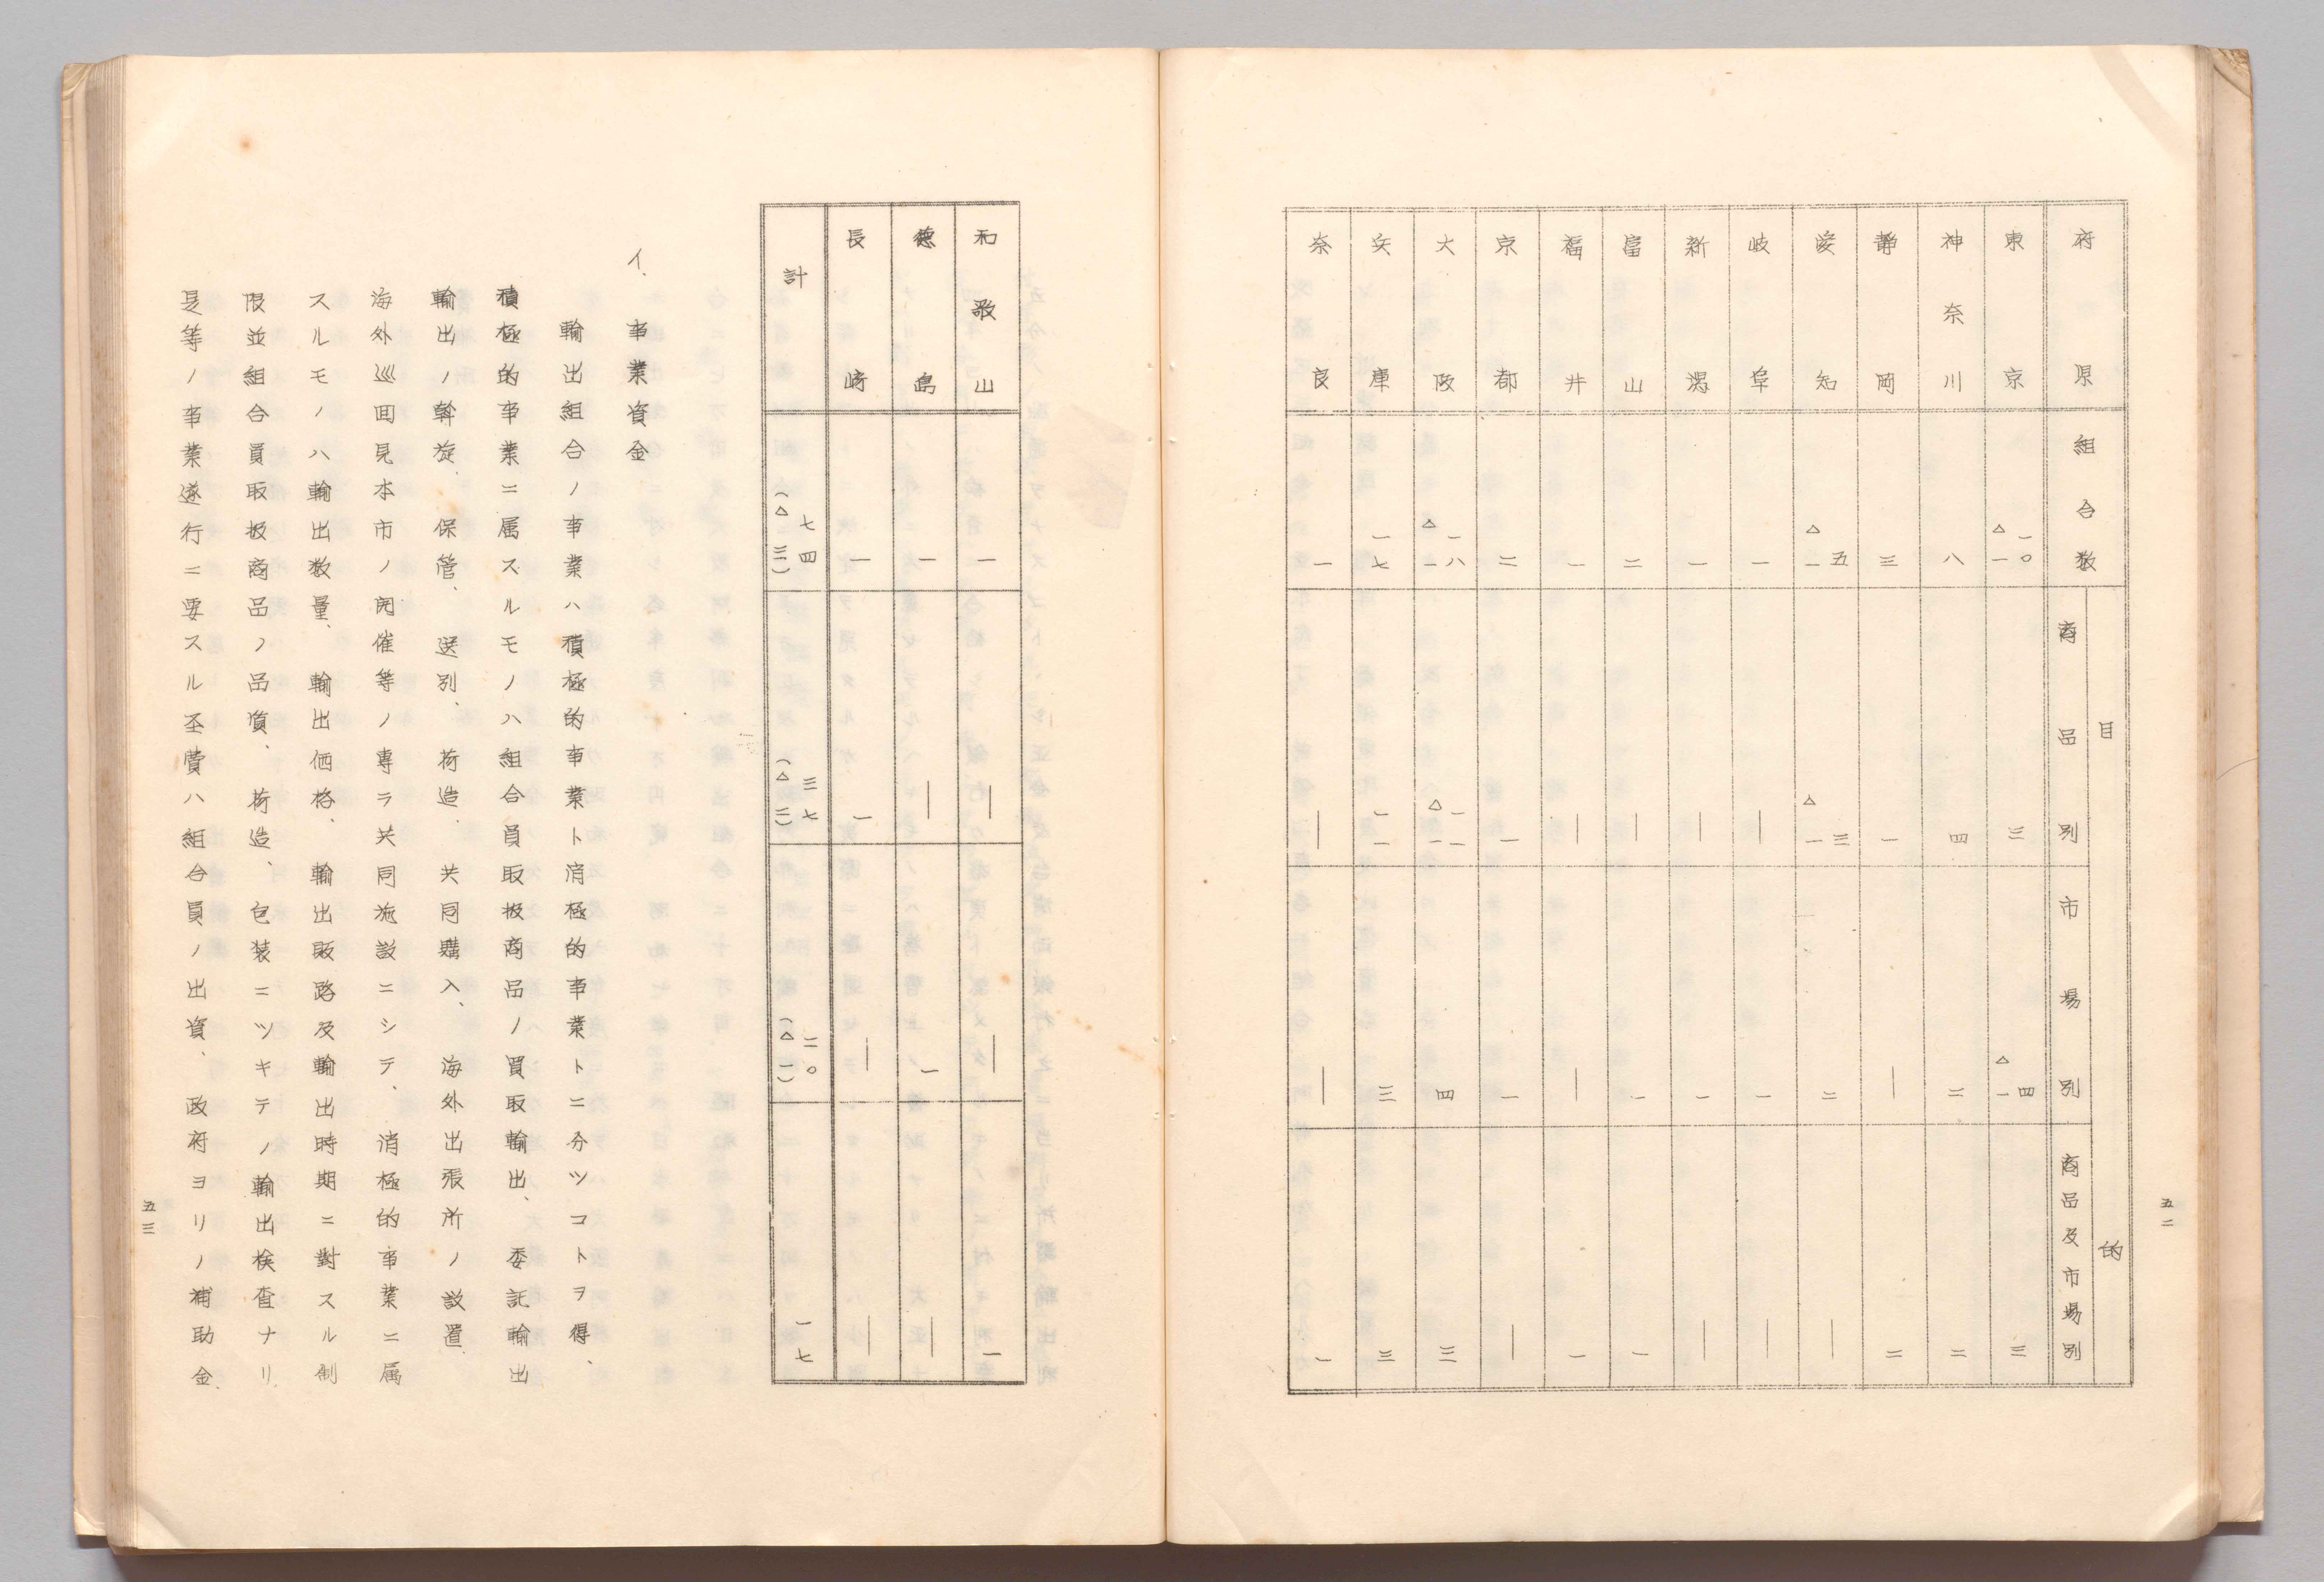 府県 組合数 目的 商品別 市場別 商品及市場別
東京 一〇 △一 三 四 △一 三
神奈川 八 四 二 二
静岡 三 一 ― 二
愛知 五 △一 三 △一 二 ―
岐阜 一 ― 一 ―
新潟 一 ― 一 ―
富山 二 ― 一 一
福井 一 ― ― 一
京都 二 一 一 ―
大阪 一八 △一 一一 △一 四 三
兵庫 一七 一一 三 三
奈良 一 ― ― 一
五二
和歌山 一 ― ― 一
徳島 一 ― 一 ―
長崎 一 一 ― ―
計 七四 (△三) 三七 (△二) 二〇 (△一) 一七
イ、事業資金
輸出組合ノ事業ハ積極的事業ト消極的事業トニ分ツコトヲ得、
積極的事業ニ属スルモノハ組合員取扱商品ノ買取輸出、委託輸出
輸出ノ斡旋、保管、選別、荷造、共同購入、海外出張所ノ設置
海外巡回見本市ノ開催等ノ専ラ共同施設ニシテ、消極的事業ニ属
スルモノハ輸出数量、輸出価格、輸出販路及輸出時期ニ對スル制
限並組合員取扱商品ノ品質、荷造、包装ニツキテノ輸出検査ナリ
是等ノ事業遂行ニ要スル圣費ハ組合員ノ出資、政府ヨリノ補助金、
五三